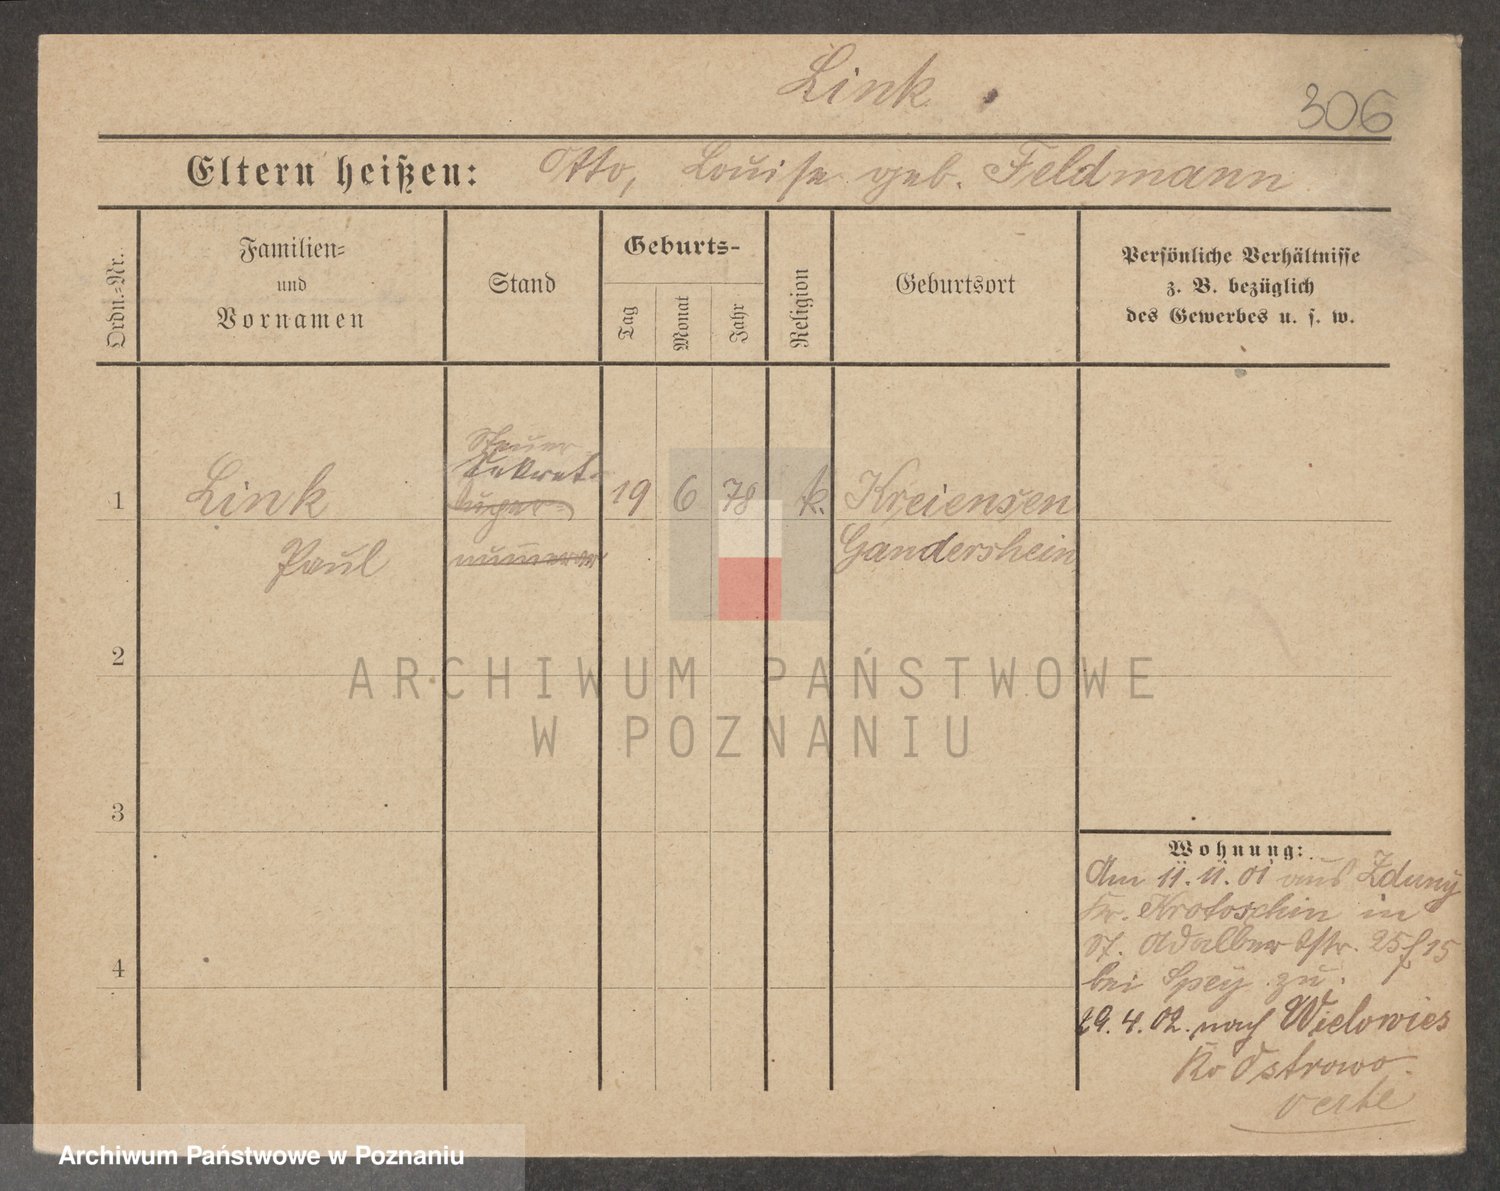 Link
306
Eltern heißen: Otto, Louise geb. Feldmann
Ordn.-Nr.
Familien-
und
Vornamen
Stand
Geburts-
Tag
Monat
Jahr
Religion
Geburtsort
Persönliche Verhältnisse
z. B. bezüglich
des Gewerbes u. s. w.
Steuer
Sekret.
1 Link 19 6 78 k. Kreiensen
Paul numerar Gandersheim
2
3
4
Wohnung:
Am 11. 11. 01 aus Zduny
Kr. Krotoschin in
St. Adalbertstr. 25 f 15
bei Spey zu.
29. 4. 02. nach Wielowies
Kr Ostrowo.
verte
ARCHIWUM PAŃSTWOWE
W POZNANIU
Archiwum Państwowe w Poznaniu